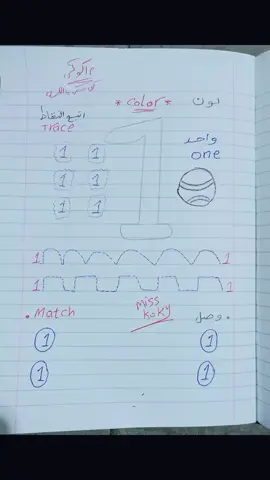 * color *
لون
اتبع النقاط
Trace
واحد
one
1 1
1 1
1 1
1 1
1 1
. Match
Miss
Koky
وصل .
1 1
1 1